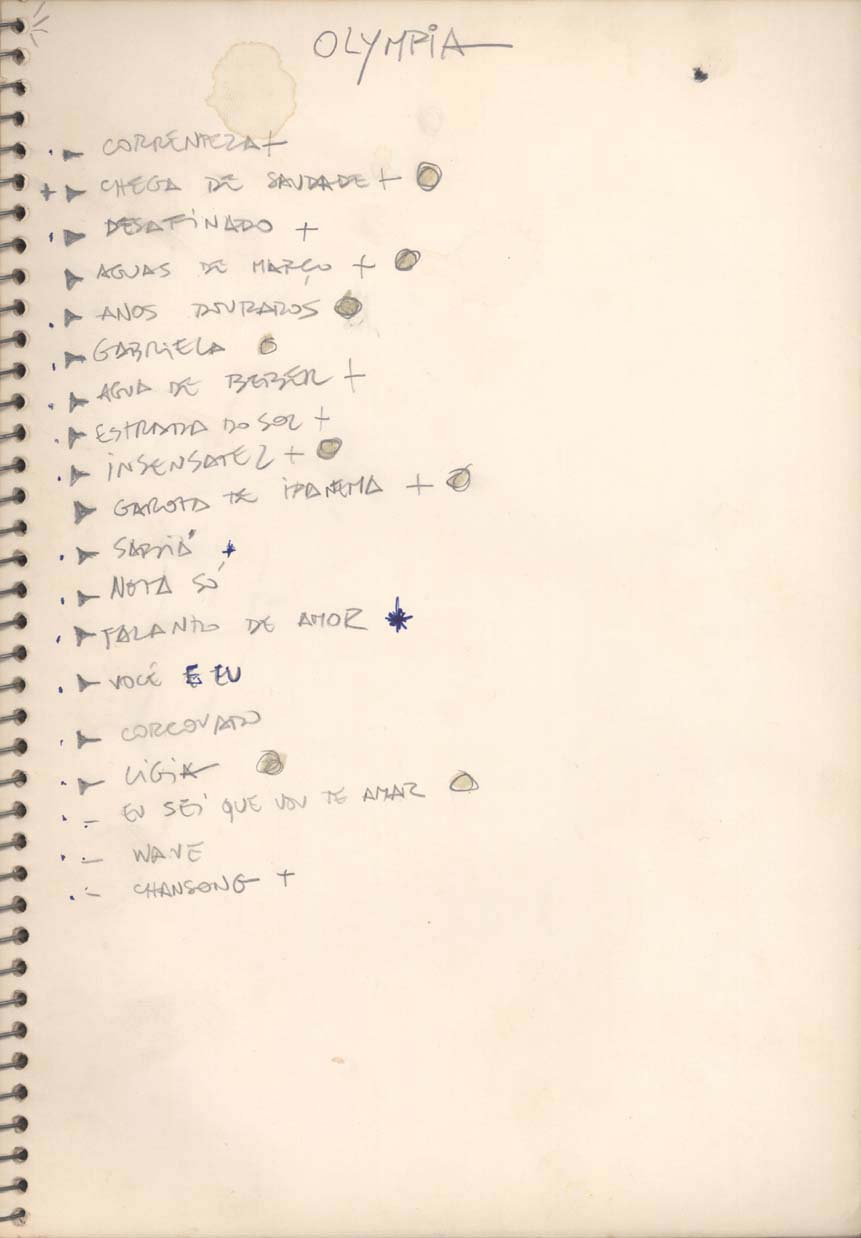 OLYMPIA
CORRENTEZA +
+ CHEGA DE SAUDADE +
DESAFINADO +
AGUAS DE MARÇO +
ANOS DOURADOS
GABRIELA
AGUA DE BEBER +
ESTRADA DO SOL +
INSENSATEZ +
GAROTA DE IPANEMA +
SABIÁ
NOTA SÓ
FALANDO DE AMOR
VOCÊ E EU
CORCOVADO
LIGIA
- EU SEI QUE VOU TE AMAR
- WAVE
- CHANSONG +